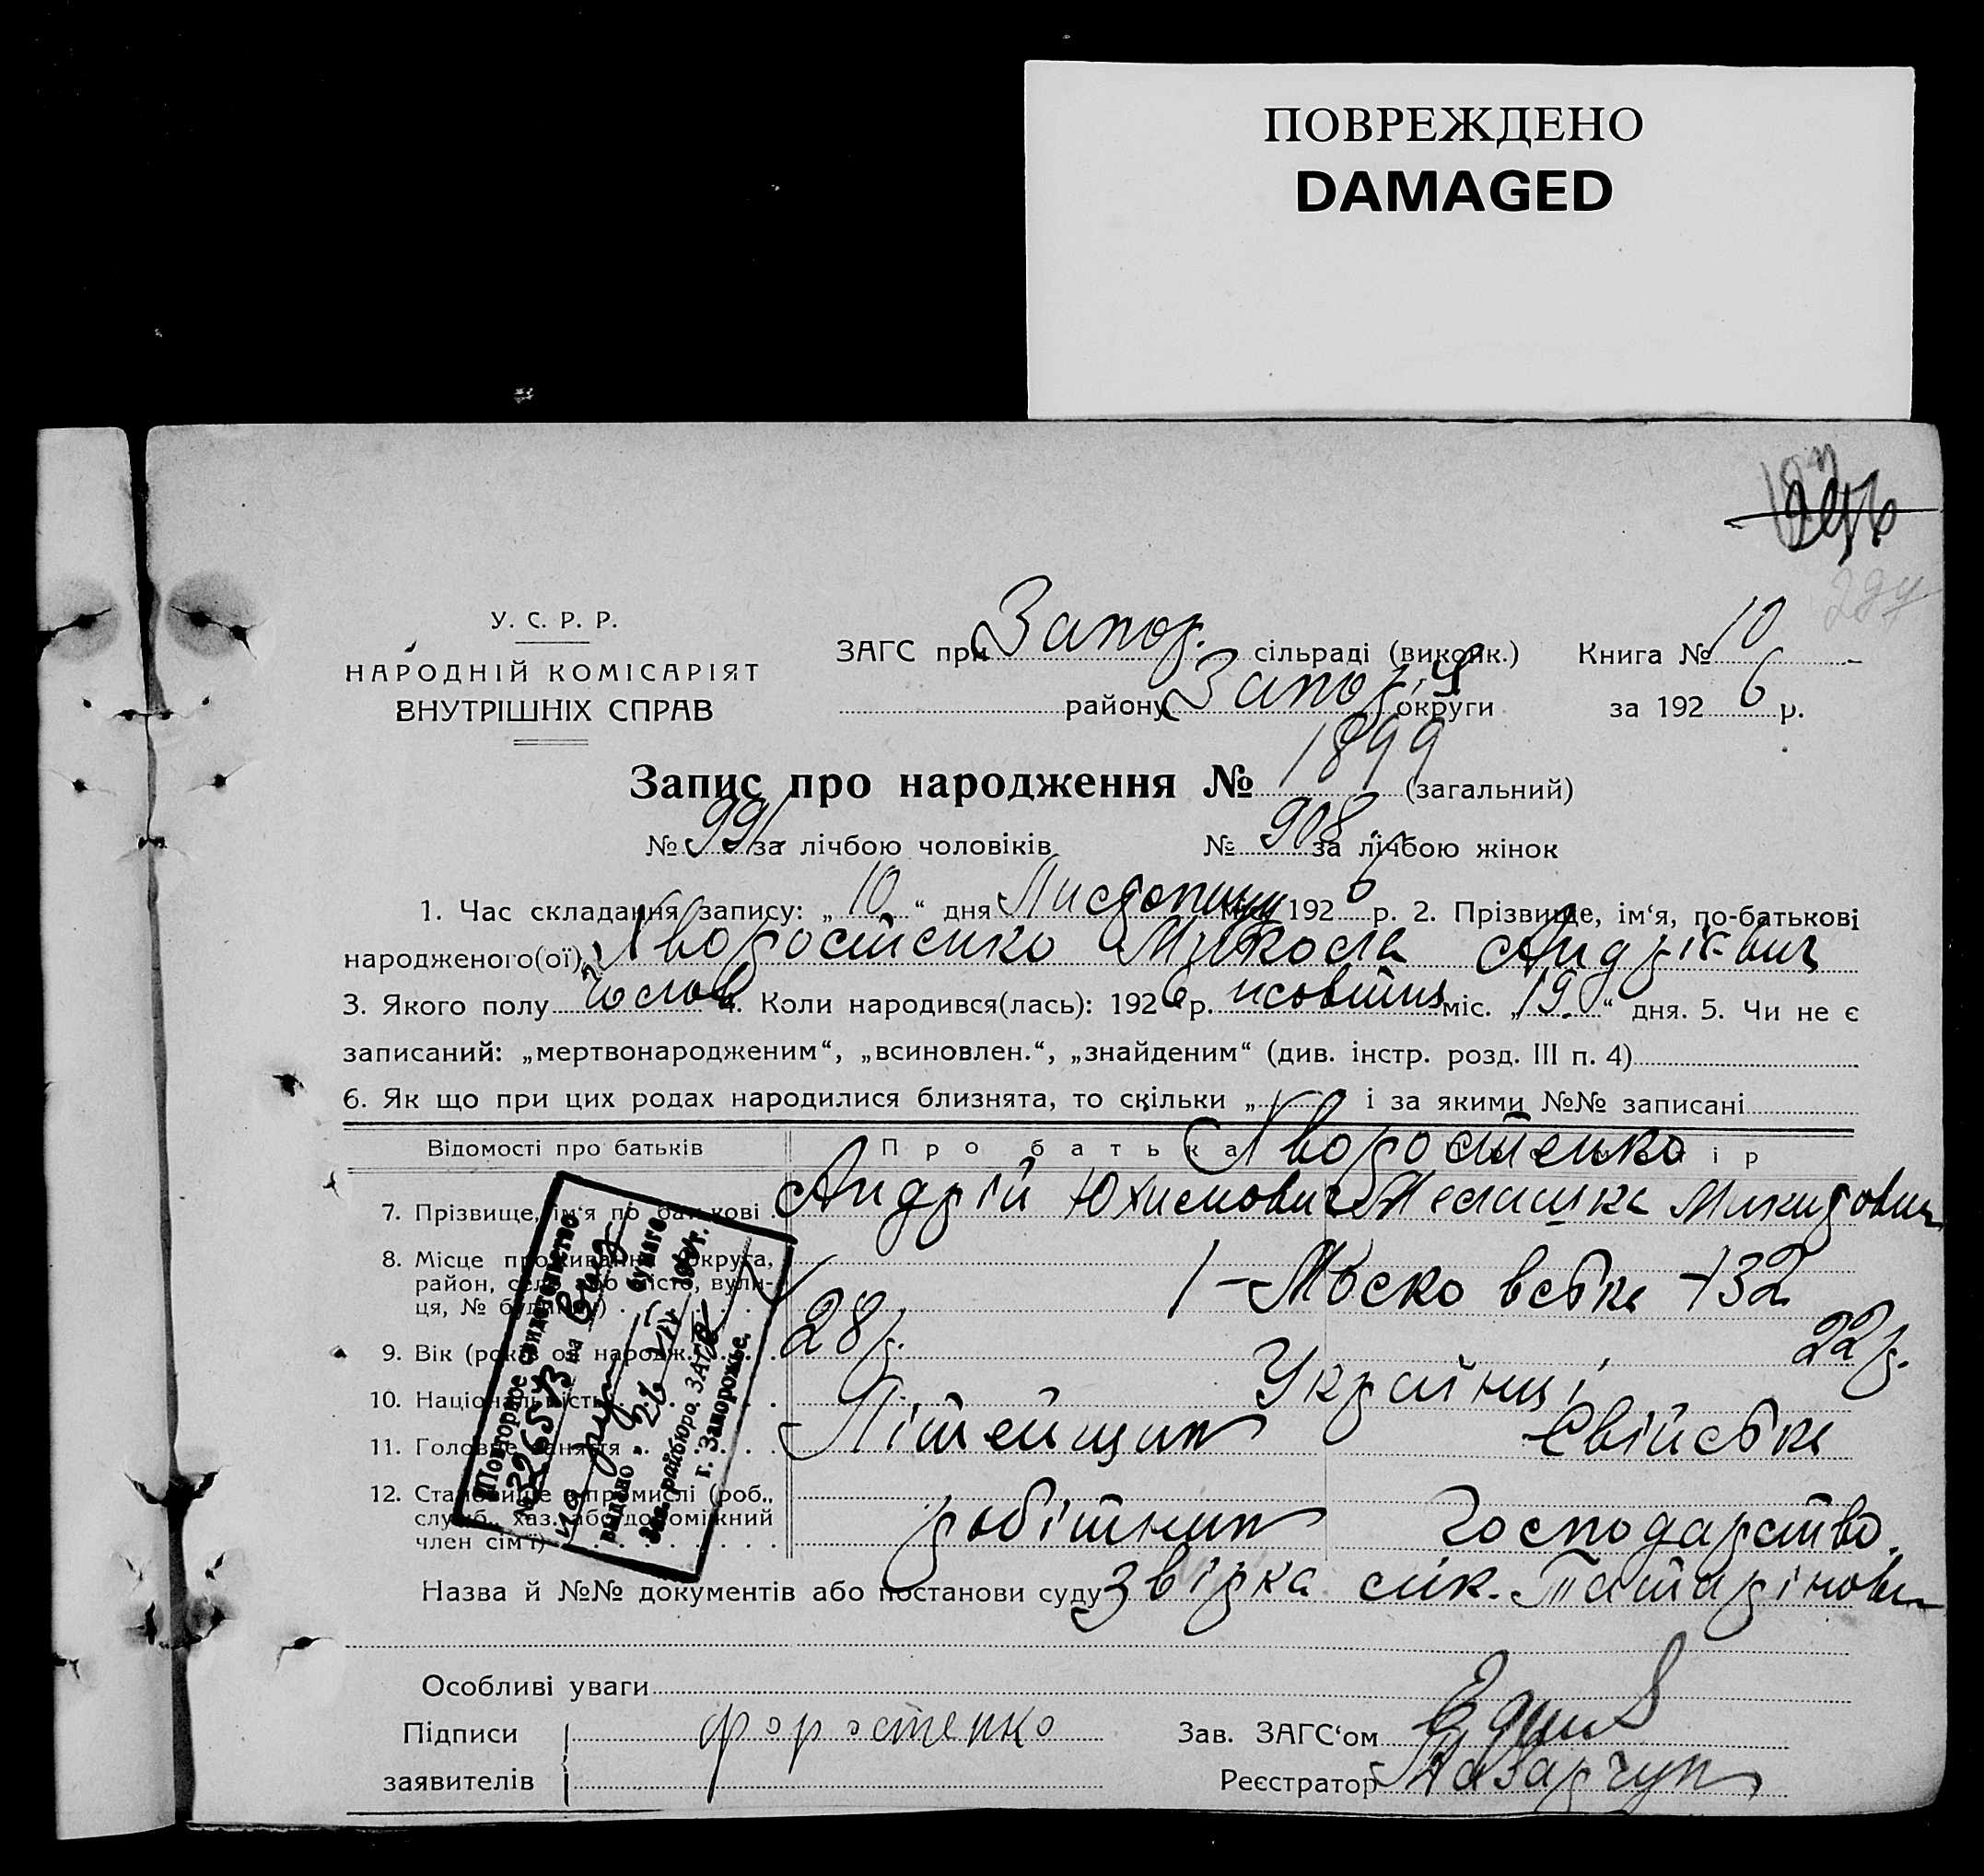 ПОВРЕЖДЕНО
DAMAGED
297
У. С. Р. Р.
НАРОДНІЙ КОМІСАРІЯТ
ВНУТРІШНІХ СПРАВ
ЗАГС при Запор. сільраді (викойк.) Книга № 10
району Запор. округи за 1926 р.
Запис про народження № 1899 (загальний)
№ 991 за лічбою чоловіків № 908 за лічбою жінок
1. Час складання запису: „10“ дня Листопаду 1926 р. 2. Прізвище, ім‘я, по-батькові
народженого(ої) Хворостенко Микола Андрієвич
3. Якого полу чолов 4. Коли народився(лась): 1926 р. жовтня міс. „19“ дня. 5. Чи не є
записаний: „мертвонародженим“, „всиновлен.“, „знайденим“ (див. інстр. розд. III п. 4)
6. Як що при цих родах народилися близнята, то скільки „ і за якими №№ записані
Відомості про батьків Про батька
Хворостенко
7. Прізвище, ім‘я по батькові Андрій Юхимович Мелашка Микидовна
8. Місце проживання округа,
район, село або місто, вули-
ця, № будинку) 1 – Московська 132
9. Вік (років од народж. 28 р. 22 р.
10. Національність Українці
11. Головне заняття Літейщик Свійське
12. Становище в промислі (роб.,
служб., хаз. або допоміжний
член сім‘ї) робітник господарство.
Повторное свидетельство
выдано
Зав. райбюро ЗАГС
г. Запорожье.
Назва й №№ документів або постанови суду Звірка сік. Татарінови
Особливі уваги
Підписи Форостенко Зав. ЗАГС‘ом
заявителів Реєстратор Назарчук